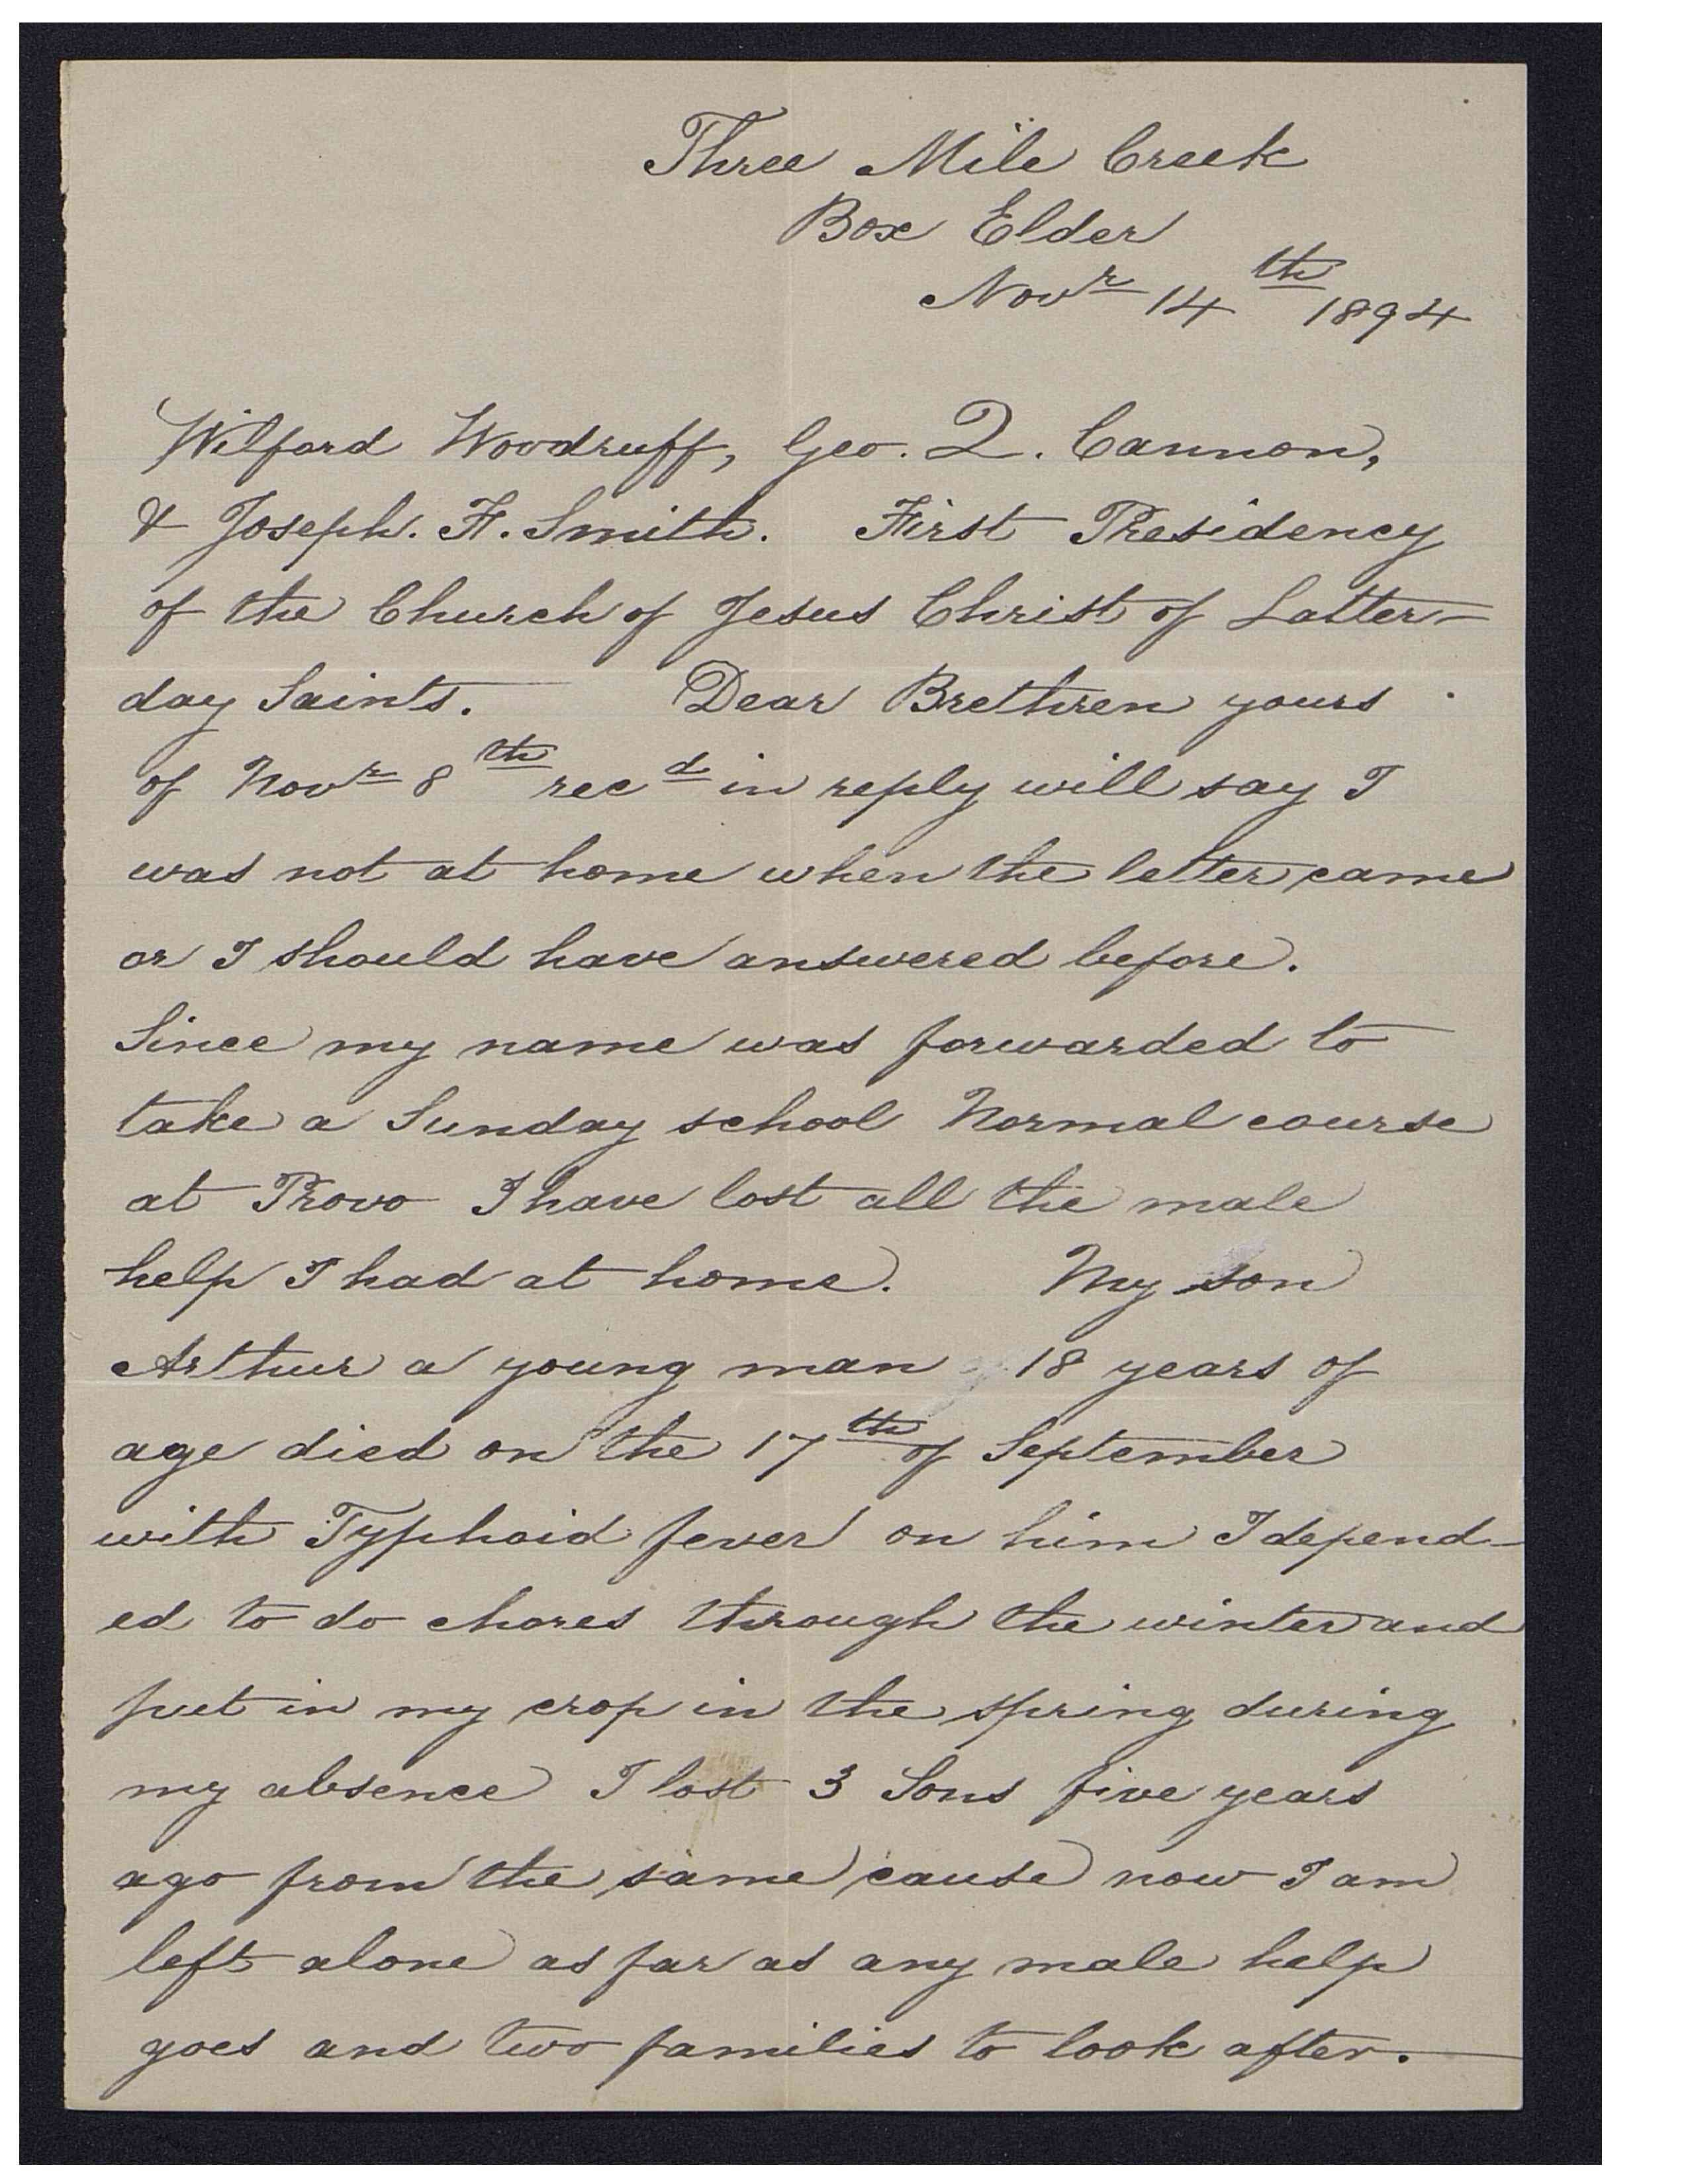 Three Mile Creek
Box Elder
Novr 14th 1894
Wilford Woodruff, Geo. Q. Cannon,
& Joseph. F. Smith. First Presidency
of the Church of Jesus Christ of Latter-
day Saints. Dear Brethren yours
of Novr 8th recd in reply will say I
was not at home when the letter came
or I should have answered before.
Since my name was forwarded to
take a Sunday school Normal course
at Provo I have lost all the male
help I had at home. My son
Arthur a young man 18 years of
age died on the 17th of September
with Typhoid fever on him I depend-
ed to do chores through the winter and
put in my crop in the spring during
my absence I lost 3 Sons five years
ago from the same cause now I am
left alone as far as any male help
goes and two families to look after.